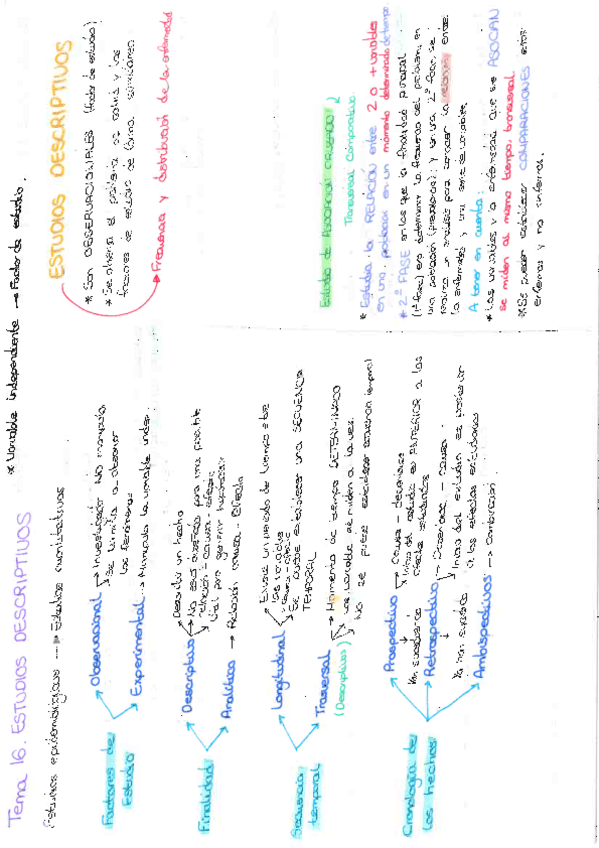 Tema 16. ESTUDIOS DESCRIPTIVOS
* Variable independiente → Factor de estudio.
Estudios epidemiológicos → Estudios cuantitativos
Factores de
Estudio
Observacional → Investigador NO manipula
Se limita a observar
los fenómenos
Experimental → Manipula la variable indep.
Finalidad
Descriptivo → Describir un hecho
No está diseñado para
relación causa-efecto
Útil para generar hipótesis
Analítico → Relación causa - Efecto
Secuencia
temporal
Longitudinal → Existe un periodo de tiempo entre
las variables
causa-efecto
Se puede establecer una SECUENCIA
TEMPORAL
Trasversal → Momento de tiempo DETERMINADO
(Descriptivos)
Las variables se miden a la vez.
No se puede establecer secuencia temporal
Cronología de
los hechos
Prospectivo → causa - desenlace
Inicio del estudio es ANTERIOR a los
Retrospectivo → Desenlace - causa
Inicio del estudio es posterior
a los efectos estudiados
Ambispectivos → Combinación
ESTUDIOS DESCRIPTIVOS
* Son OBSERVACIONALES (factor de estudio)
* Se observa el problema de salud y los
factores de estudio de forma
→ Frecuencia y distribución de la enfermedad
Estudio de ASOCIACIÓN CRUZADA /
Transversal Comparativo.
* Estudia la RELACIÓN entre 2 o + variables
en una población en un momento determinado de tiempo
* 2ª FASE en los que la finalidad
(1ª fase) era determinar la frecuencia del problema en
una población (prevalencia), y en una 2ª fase, se
realiza un análisis para conocer la relación entre
la enfermedad y una serie de variables.
A tener en cuenta:
* Las variables y la enfermedad que se ASOCIAN
se miden al mismo tiempo, transversal.
* Se pueden establecer COMPARACIONES entre
enfermos y no enfermos.